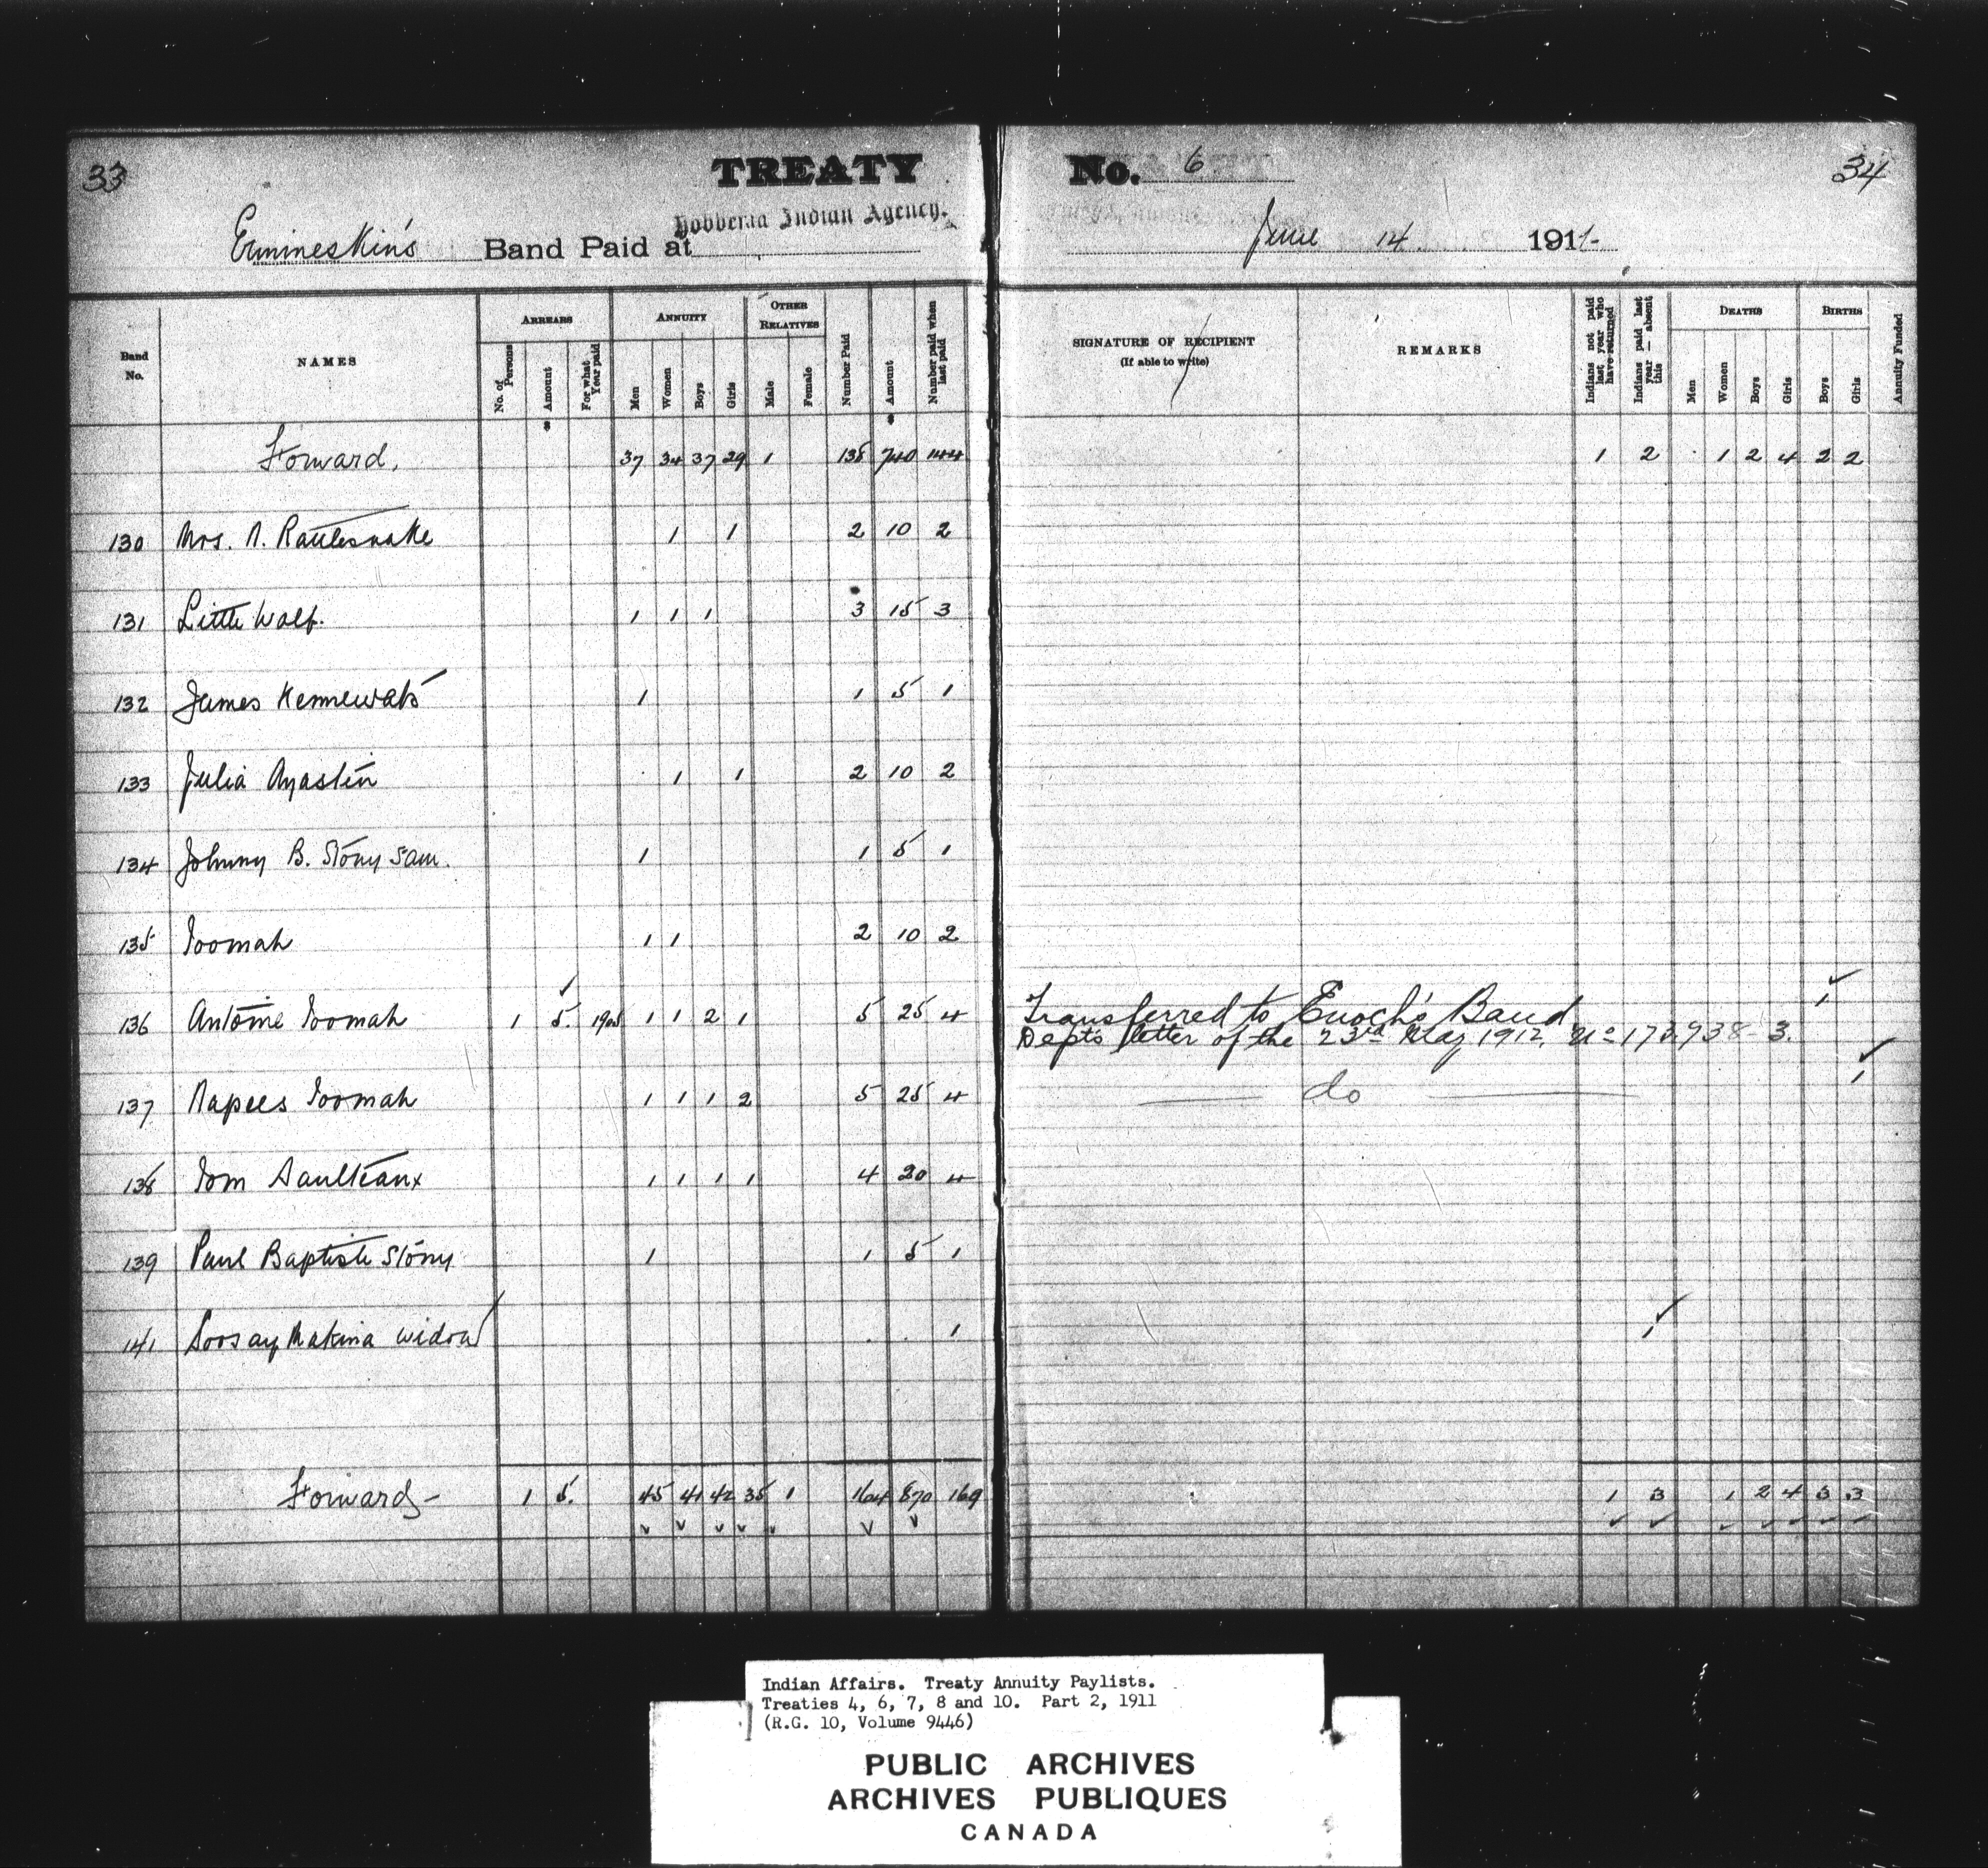 33
TREATY No. 6
34
Ermineskin's Band Paid at Hobbema Indian Agency. June 14 1911-
Band No.
NAMES
ARREARS
No. of Persons
Amount
For what Year paid
ANNUITY
Men
Women
Boys
Girls
OTHER RELATIVES
Male
Female
Number Paid
Amount
Number paid when last paid
SIGNATURE OF RECIPIENT
(If able to write)
REMARKS
Indians not paid last year who have returned
Indians paid last year — absent this
DEATHS
Men
Women
Boys
Girls
BIRTHS
Boys
Girls
Annuity Funded
Forward, 37 34 37 29 1 138 740 144 1 2 1 2 4 2 2
130 Mrs. N. Rattlesnake 1 1 2 10 2
131 Little Wolf. 1 1 1 3 15 3
132 James 1 1 5 1
133 Julia 1 1 2 10 2
134 Johnny B. Stony Sam. 1 1 5 1
135 Toomah 1 1 2 10 2
136 Antoine Toomah 1 5. 1 1 2 1 5 25 4 Transferred to Enoch's Band 1
Dept's letter of the 23rd May 1912. No
137 Napees Toomah 1 1 1 2 5 25 4 do 1
138 Tom Saulteaux 1 1 1 1 4 20 4
139 Paul Baptiste Stony 1 1 5 1
141 Soosay Makina widow 1 1
Forward - 1 5. 45 41 42 35 1 164 870 169 1 3 1 2 4 3 3
Indian Affairs. Treaty Annuity Paylists.
Treaties 4, 6, 7, 8 and 10. Part 2, 1911
(R.G. 10, Volume 9446)
PUBLIC ARCHIVES
ARCHIVES PUBLIQUES
CANADA